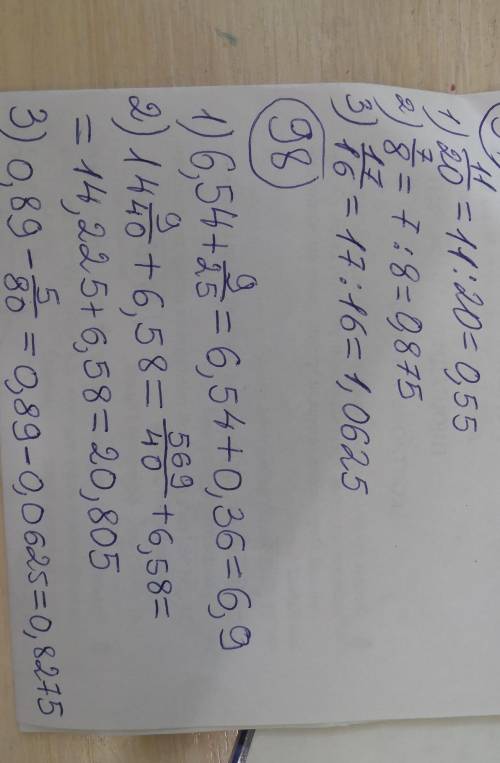 1) 11/20 = 11:20 = 0,55
2) 7/8 = 7:8 = 0,875
3) 17/16 = 17:16 = 1,0625
98
1) 6,54 + 9/25 = 6,54 + 0,36 = 6,9
2) 14 9/40 + 6,58 = 569/40 + 6,58 =
= 14,225 + 6,58 = 20,805
3) 0,89 - 5/80 = 0,89 - 0,0625 = 0,8275